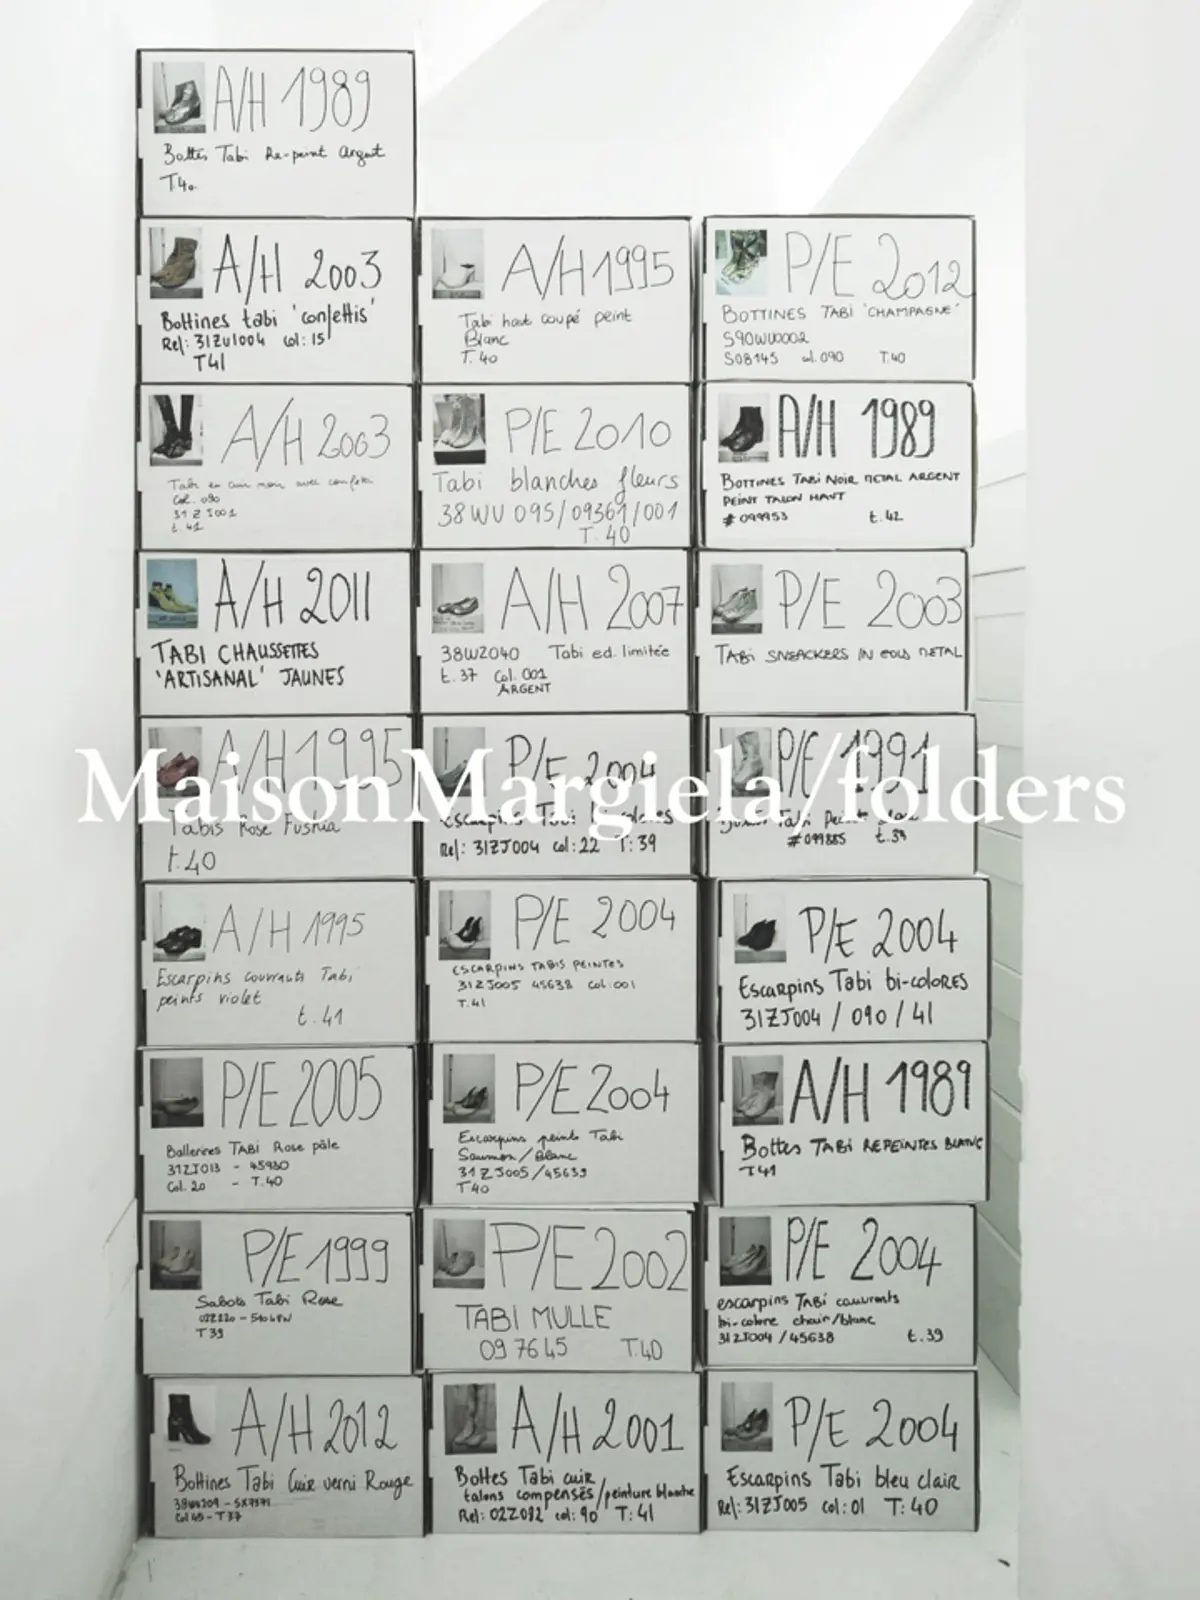 A/H 1989
Bottes Tabi Re-peint Argent
T40
A/H 2003
Bottines tabi 'confettis'
Ref: 31ZU1004 col: 15
T41
A/H 2003
Tabi en cuir noir avec confetti
Col. 090
31 Z J001
t. 41
A/H 2011
TABI CHAUSSETTES
'ARTISANAL' JAUNES
A/H 1995
Tabis Rose Fushia
t. 40
A/H 1995
Escarpins couvrants Tabi
peints violet
t. 41
P/E 2005
Ballerines TABI Rose pâle
31ZJ013 - 45930
Col. 20 - T. 40
P/E 1999
Sabots Tabi Rose
T 39
A/H 2012
Bottines Tabi Cuir verni Rouge
Col 45 - T 37
A/H 1995
Tabi haut coupé peint
Blanc
T. 40
P/E 2010
Tabi blanches fleurs
38 WU 095/09361/001
T. 40
A/H 2007
38W2040 Tabi ed. limitée
t. 37 Col. 001
ARGENT
P/E 2004
Escarpins Tabi
Ref: 31ZJ004 col: 22 T: 39
P/E 2004
ESCARPINS TABIS PEINTES
31ZJ005 45638 Col: 001
T. 41
P/E 2004
Escarpins peints Tabi
Saumon / Blanc
31 Z J005 / 45639
T 40
P/E 2002
TABI MULLE
09 76 45 T.40
A/H 2001
Bottes Tabi cuir
talons compensés/peinture blanche
Ref: 02Z092 col: 90 T: 41
P/E 2012
BOTTINES TABI 'CHAMPAGNE'
S90WU0002
S08145 col. 090 T. 40
A/H 1989
BOTTINES TABI NOIR METAL ARGENT
PEINT TALON HAUT
# 099953 t. 42
P/E 2003
TABI SNEACKERS IN GOLD METAL
P/E 1991
Tabi
# 099885 t. 39
P/E 2004
Escarpins Tabi bi-COLORES
31ZJ004 / 090 / 41
A/H 1989
Bottes TABI REPEINTES BLANC
T41
P/E 2004
escarpins TABI couvrants
bi-colore chair/blanc
31ZJ004 / 45638 t. 39
P/E 2004
Escarpins Tabi bleu clair
Ref: 31ZJ005 col: 01 T: 40
MaisonMargiela/folders